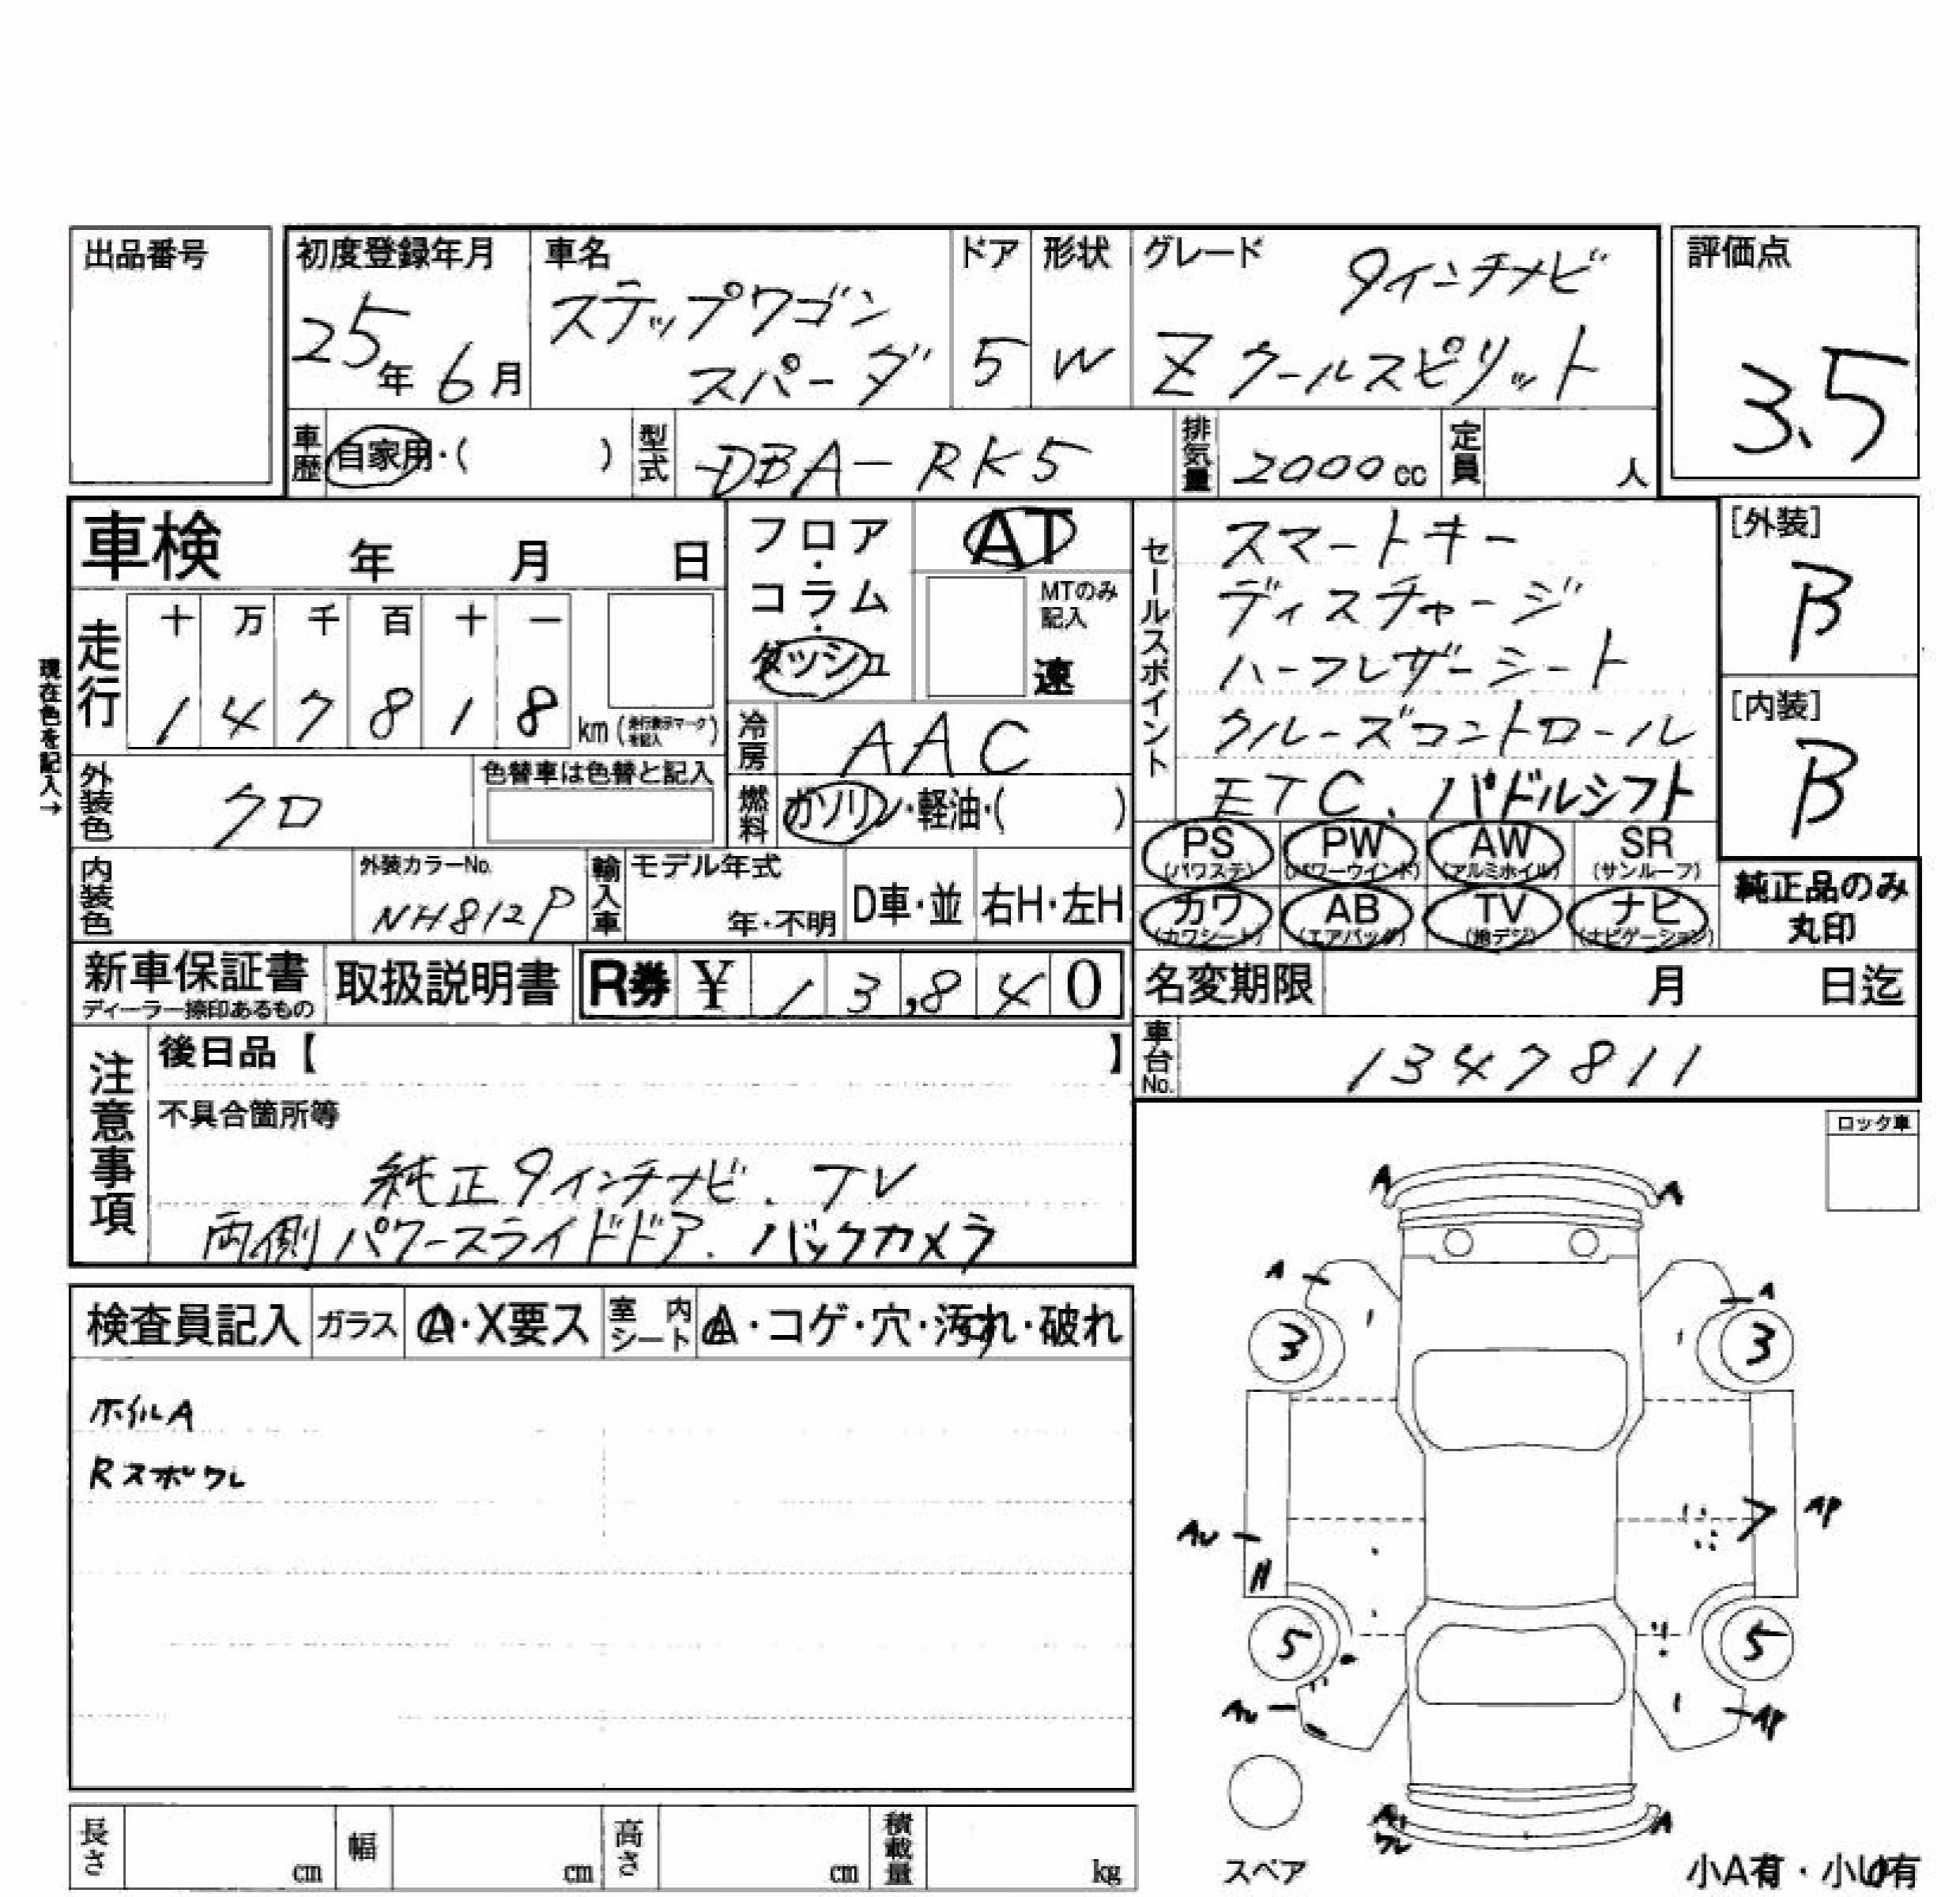 出品番号
初度登録年月 車名 ドア 形状 グレード 評価点
9インチナビ
ステップワゴン
25年 6月 スパーダ 5 W Z クールスピリット 3.5
車歴 自家用・( ) 型式 DBA-RK5 排気量 2000cc 定員 人
車検 年 月 日
フロア・コラム・ダッシュ AT
MTのみ記入 速
セールスポイント
スマートキー
ディスチャージ
ハーフレザーシート
クルーズコントロール
ETC. パドルシフト
[外装] B
[内装] B
現在色を記入→
走行 十 万 千 百 十 一
1 4 7 8 1 8 km (走行表示マークを記入)
冷房 AAC
外装色 クロ 色替車は色替と記入
燃料 ガソリン・軽油・( )
PS (パワステ) PW (パワーウインド) AW (アルミホイル) SR (サンルーフ)
カワ (カワシート) AB (エアバッグ) TV (地デジ) ナビ (ナビゲーション)
純正品のみ丸印
内装色 外装カラーNo. NH812P 輸入車 モデル年式 年・不明 D車・並 右H・左H
新車保証書 ディーラー捺印あるもの 取扱説明書 R券 ¥ 13,840
名変期限 月 日迄
車台No. 1347811
注意事項
後日品【 】
不具合箇所等
純正9インチナビ. TV
両側パワースライドドア. バックカメラ
ロック車
検査員記入 ガラス A・X要ス 室内シート A・コゲ・穴・汚れ・破れ
ホイルA
Rスポワレ
A A
A A
3 3
AU AP
5 5
AU AP
A ワレ A
スペア
小A有・小U有
長さ cm 幅 cm 高さ cm 積載量 kg